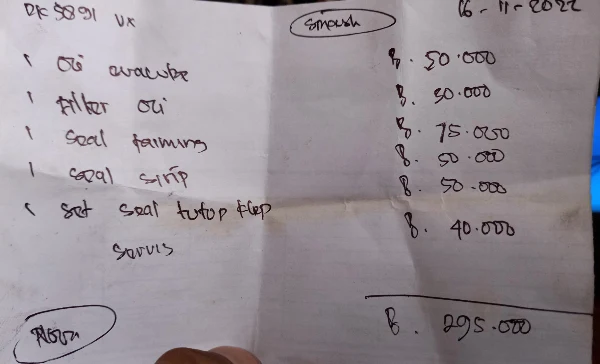 DK 5891 UX
Smash
16-11-2022
1 Oli R. 50.000
1 Filter Oli R. 30.000
1 Seal taiming R. 75.000
1 Seal sirip R. 50.000
1 Set seal tutup klep R. 50.000
Servis R. 40.000
R. 295.000